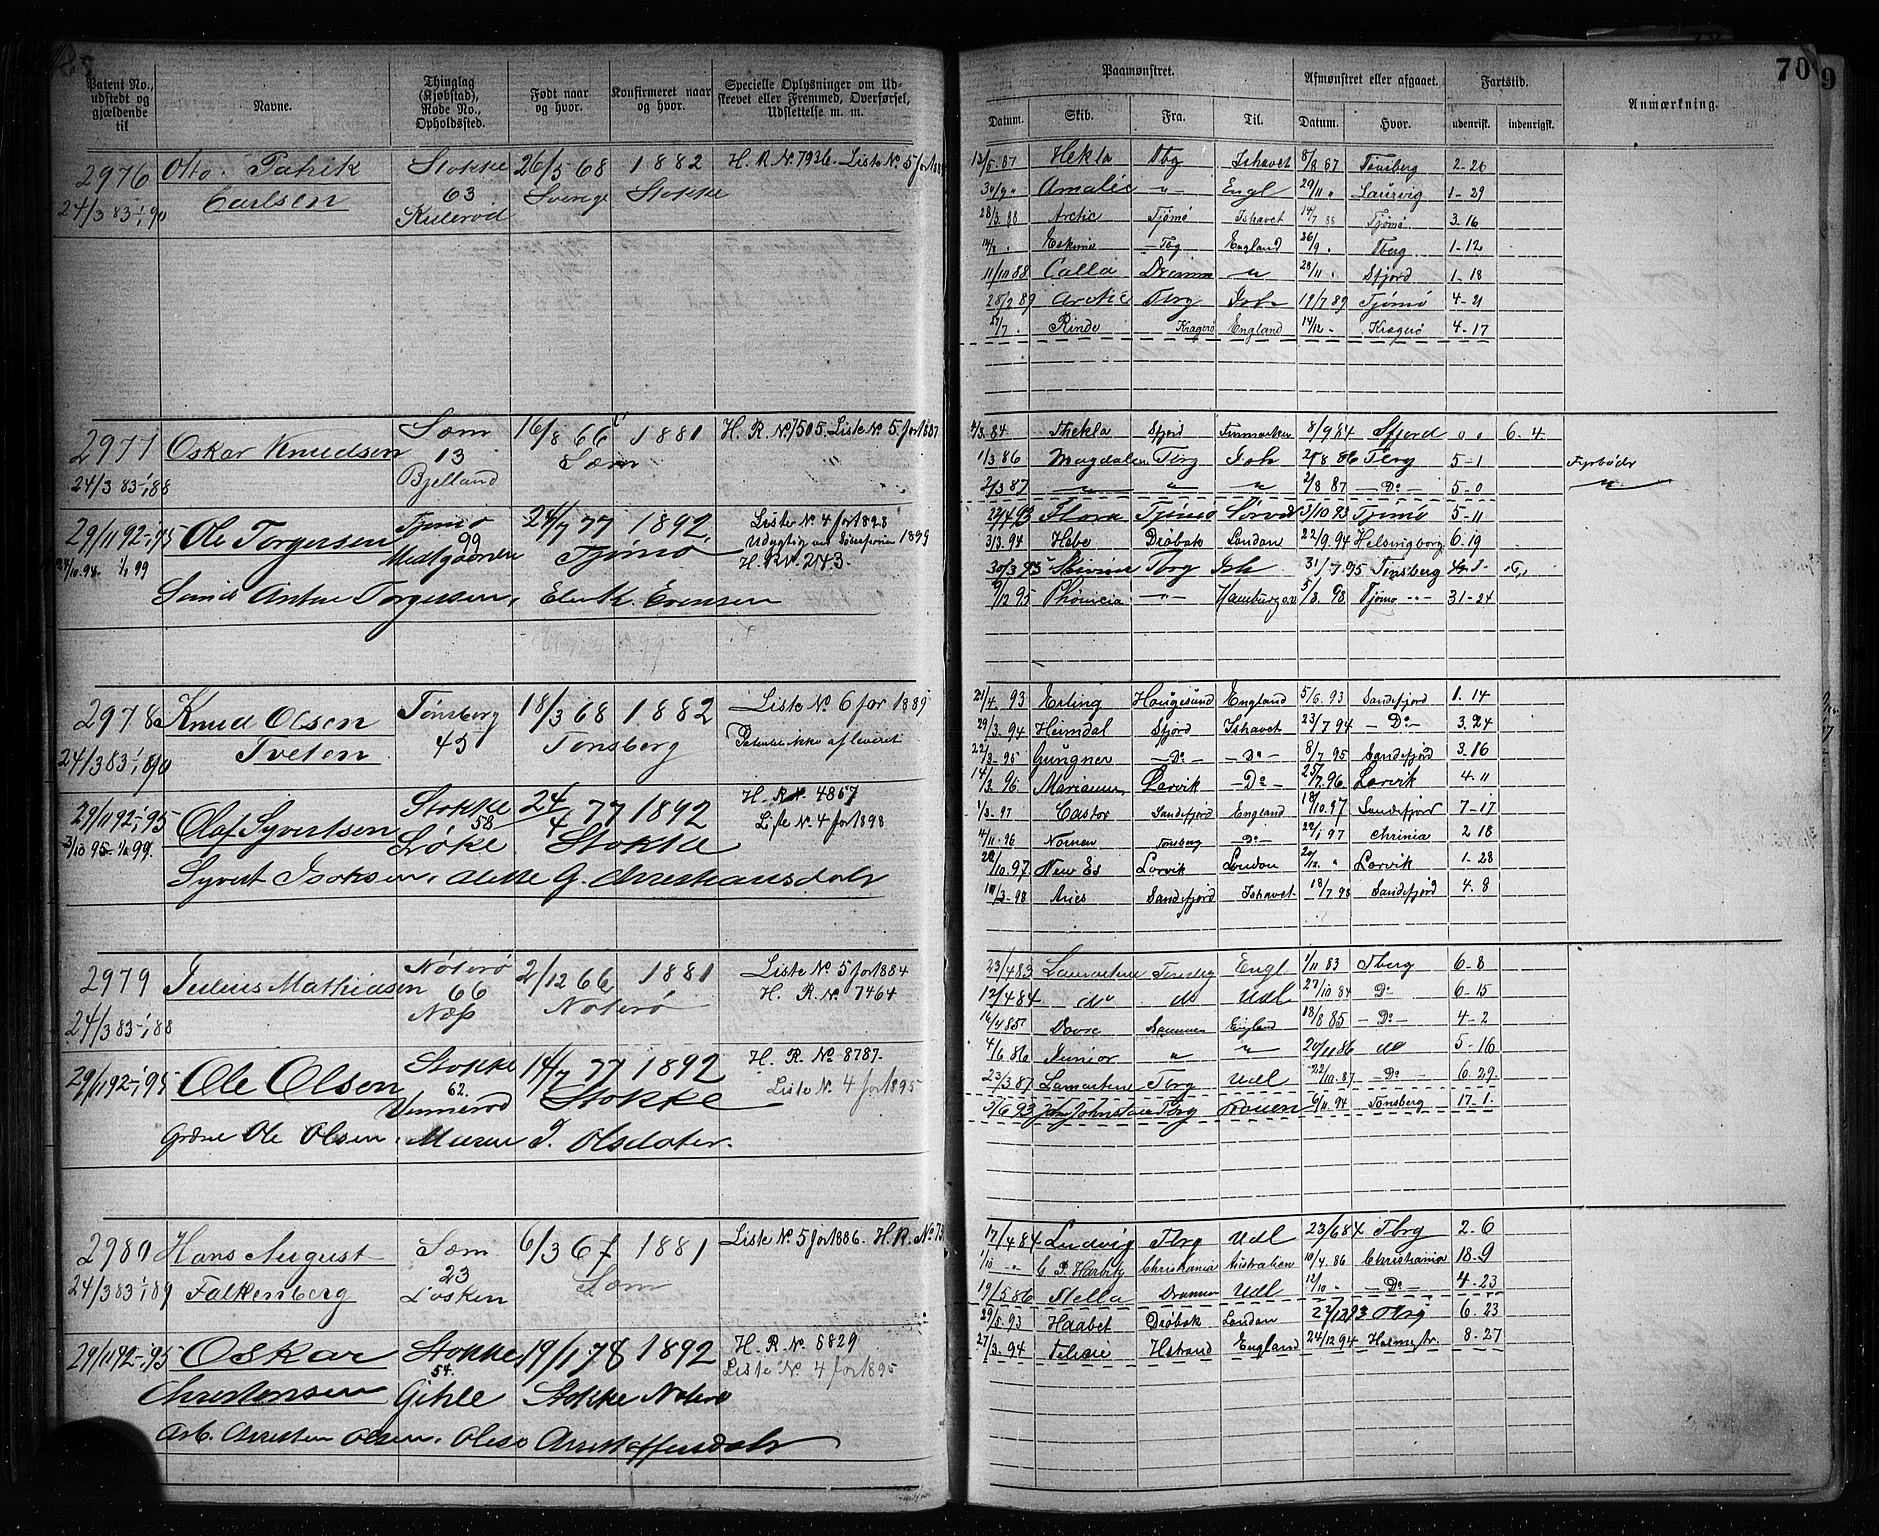 70
9
Patent No., udstedt og gjældende til
Navne.
Thinglag (Kjøbstad), Rode No., Opholdssted.
Født naar og hvor.
Konfirmeret naar og hvor.
Specielle Oplysninger om Udskrevet eller Fremmed, Overførsel, Udslettelse m. m.
Paamønstret.
Afmønstret eller afgaaet.
Fartstid.
Anmærkning.
Datum. Skib. Fra. Til. Datum. Hvor. udenrigsk. indenrigsk.
2976 Otto Patrik Stokke 26/5 68 1882 H. R. N. 7936. Liste No 5 for
24/3 83-1/1 90 Carlsen 63 Sverige Stokke
13/5 87 Hekla Tbg Ishavet 8/8 87 Tønsberg 2-26
30/9 " Amalie " Engl 29/11 " Laurvig 1-29
28/3 88 Arctic Tjømø Ishavet 14/7 88 Tjømø 3-16
14/8 " Tbg England 26/9 " Tberg 1-12
11/10 88 Calla " 28/11 " Sfjord 1-18
28/2 89 Arctic Tbrg Ish 19/7 89 Tjømø 4-21
27/7 " Rinde Kragerø England 14/12 " Kragerø 4-17
2977 Oskar Knudsen Sæm 16/8 66 1881 H. R. No 7505. Liste No 5 for 1887
13 Sæm
24/3 83-1/1 88 Bjelland
Thekla Sfjord Finmarken 8/9 84 Sfjord 0 0 6-4
1/3 86 Magdalen Tbrg Ish 21/8 86 Tbrg 5-1 Fyrbøder
2/3 87 " " " 2/8 87 - Do - 5-0 "
29/11 92-1/1 95 Ole Torgersen Tjømø 24/7 77 1892 Liste No 4 for 1898
99 Tjømø 1899
24/10 94-1/1 99 H. R. No. 243.
Torgersen, Evensen
22/4 93 Flora Tjømø 3/10 93 Tjømø 5-11
3/3 94 Hebe Drøbak London 22/9 94 Helsingborg 6-19
30/3 95 Tbrg Ish 31/7 95 Tønsberg
9/12 95 Phønicia " Hamburg 5/8 98 Tjømø 31-24
2978 Knud Olsen Tønsberg 18/3 68 1882 Liste No 6 for 1889
24/3 83-1/1 90 Tveten 45 Tønsberg Patentet ikke afleveret
29/11 92-1/1 95 Olaf Syvertsen Stokke 24/4 77 1892 H. R. No. 4867
3/10 95-1/1 99. 58 Løke Stokke Liste No. 4 for 1898
Syvert Isaksen, G. Christiansdatr
21/4 93 Erling Haugesund England 5/6 93 Sandefjord 1. 14
29/3 94 Heimdal Sfjord Ishavet 23/7 94 - Do - 3. 24
22/3 95 Gungner - Do - - Do - 8/7 95 Sandefjord 3. 16
14/3 96 Mariann Larvik - Do - 25/7 96 Larvik 4-11
1/3 97 Castor Sandefjord England 18/10 97 Sandefjord 7-17
4/11 96 Nornen Tønsberg - Do - 22/1 97 Chrinia 2 18
22/10 97 Larvik London " Larvik 1-28
11/3 98 Aries Sandefjord Ishavet 18/7 98 Sandefjord 4. 8
2979 Julius Mathiasen Nøterø 2/12 66 1881 Liste No 5 for 1884
66 Nøterø H. R. No. 7464
24/3 83-1/1 88 Næs
23/4 83 Lamartine Engl 1/11 83 Tberg 6-8
12/4 84 do do Udl 27/10 84 Do 6-15
16/4 85 Dovre Drammen England 18/8 85 - Do - 4-2
4/6 86 Junior " " 20/11 86 5-16
23/3 87 Lamartine Tbrg Udl 22/10 87 - Do - 6. 29
29/11 92-1/1 95 Ole Olsen Stokke 14/7 77 1892 H. R. No 8787.
62. Vennerød Stokke Liste No. 4 for 1895
Ole Olsen, J. Olsdater.
5/6 93 John Johnstone Tbrg Rouen 6/11 94 Tønsberg 17-1.
2980 Hans August Sæm 6/3 67 1881 Liste No 5 for 1886. H. R. No
24/3 83-1/1 89 Falkenberg 23 Løsken Sæm
17/4 84 Ludvig Tbrg Udl 23/6 84 Tbrg 2-6
1/10 " G. P. Harbitz Christiania Australien 10/4 86 Christiania 18-9
19/5 86 Stella Drammen Udl 12/10 " - Do - 4-23
29/11 92-1/1 95 Oskar Stokke 19/1 78 1892 H. R. No. 6829
Christensen 54. Gihle Stokke Nøterø Liste No. 4 for 1895
Arb. Christen Olsen,
29/5 93 Haabet Drøbak London 23/12 93 Tbrg 6. 23
27/3 94 Hstrand England 24/12 94 8-27